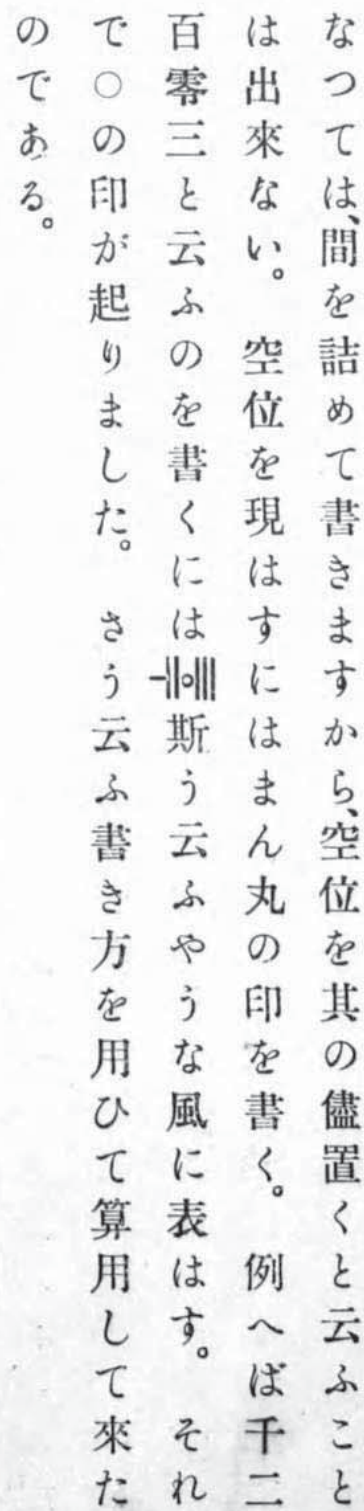 なつては、間を詰めて書きますから、空位を其の儘置くと云ふこと
は出來ない。空位を現はすにはまん丸の印を書く。例へば千二
百零三と云ふのを書くには𝍩𝍡○𝍢斯う云ふやうな風に表はす。それ
で○の印が起りました。さう云ふ書き方を用ひて算用して來た
のである。